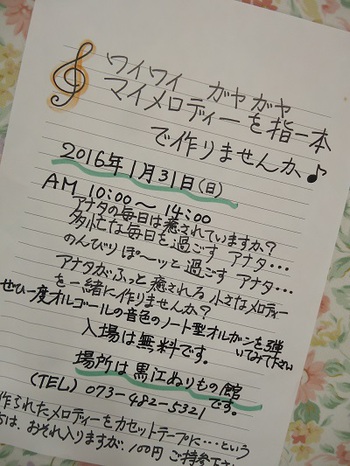 ワイワイ ガヤガヤ
マイメロディーを指一本
で作りませんか♪
2016年1月31日(日)
AM 10:00〜14:00
アナタの毎日は癒されていますか?
多忙な毎日を過ごす アナタ…
のんびりぽ〜ッと過ごす アナタ…
アナタがふっと癒される 小さなメロディー
を一緒に作りませんか?
ぜひ一度オルゴールの音色のノート型オルガンを弾
いてみて下さい
入場は無料です。
場所は黒江ぬりもの館
です。
(TEL) 073-482-5321
作られたメロディーをカセットテープに…という
は、おそれ入りますが、100円 ご持参下さ